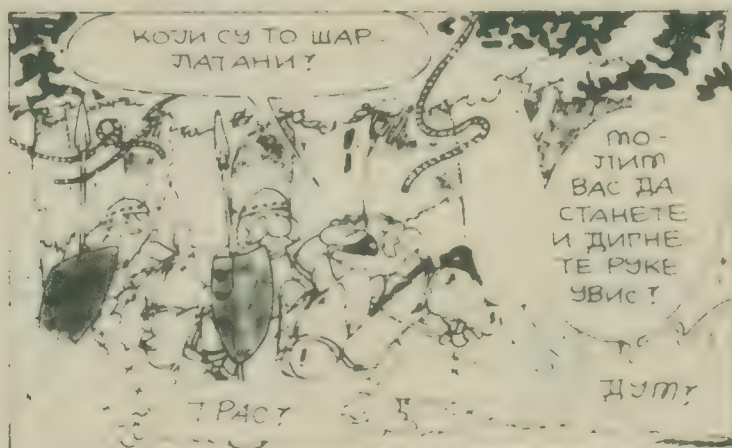 КОЈИ СУ ТО ШАР-
ЛАТАНИ?
МО-
ЛИМ
ВАС ДА
СТАНЕТЕ
И ДИГНЕ
ТЕ РУКЕ
УВИС!
ТРАС!
ДУМ!